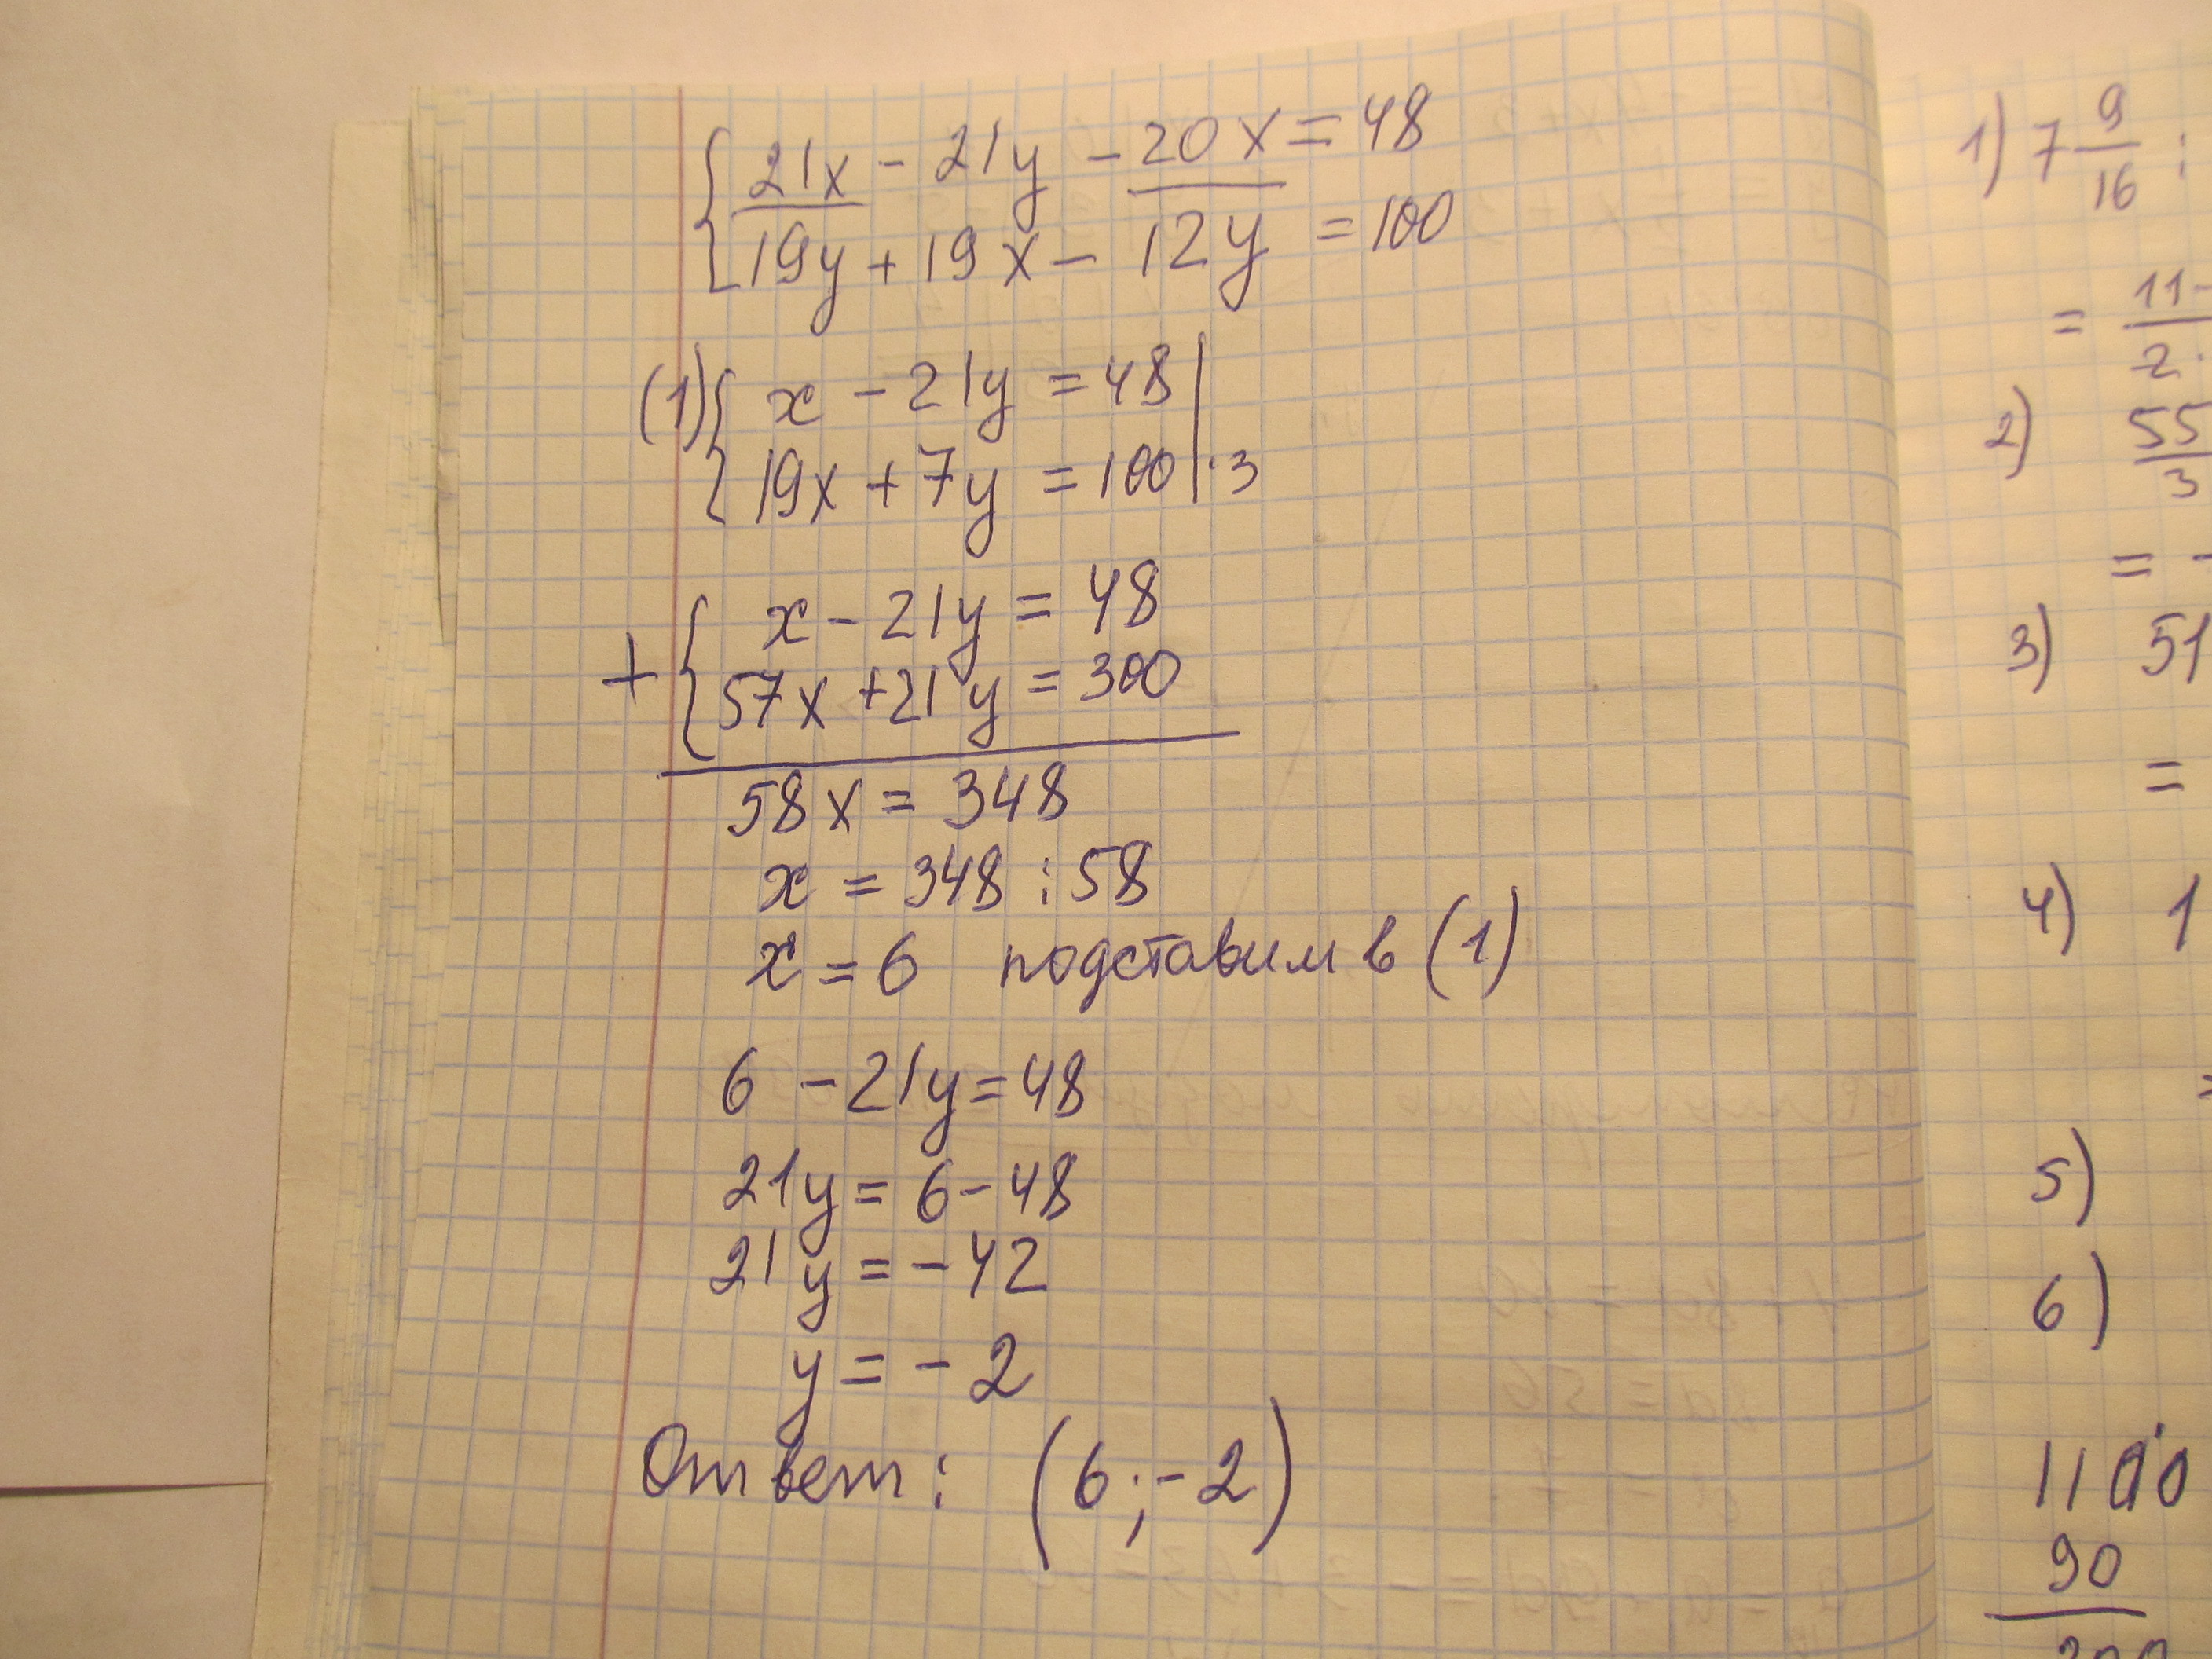 21x - 21y - 20x = 48
19y + 19x - 12y = 100
(1) x - 21y = 48
19x + 7y = 100 | ·3
+ x - 21y = 48
57x + 21y = 300
58x = 348
x = 348 : 58
x = 6 подставим в (1)
6 - 21y = 48
21y = 6 - 48
21y = -42
y = -2
Ответ: (6; -2)
1) 7 9/16 :
= 11-/2·
2) 55/3
= -
3) 51
=
4) 1
=
5)
6)
1100
90